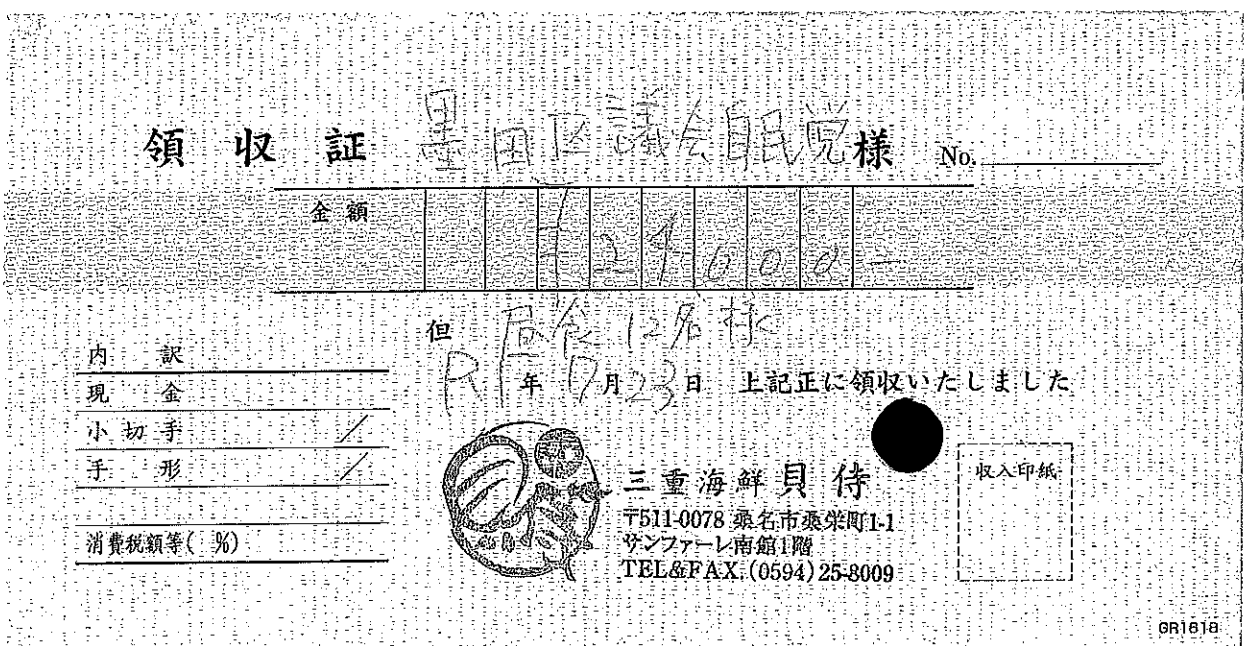 領収証 墨田区議会自民党様 No.
金額 ¥24000-
但 昼食12名様
R1年7月23日 上記正に領収いたしました
内訳
現金
小切手 /
手形 /
消費税額等( %)
三重海鮮 貝侍
〒511-0078 桑名市桑栄町1-1
サンファーレ南館1階
TEL&FAX.(0594)25-8009
収入印紙
GR1618